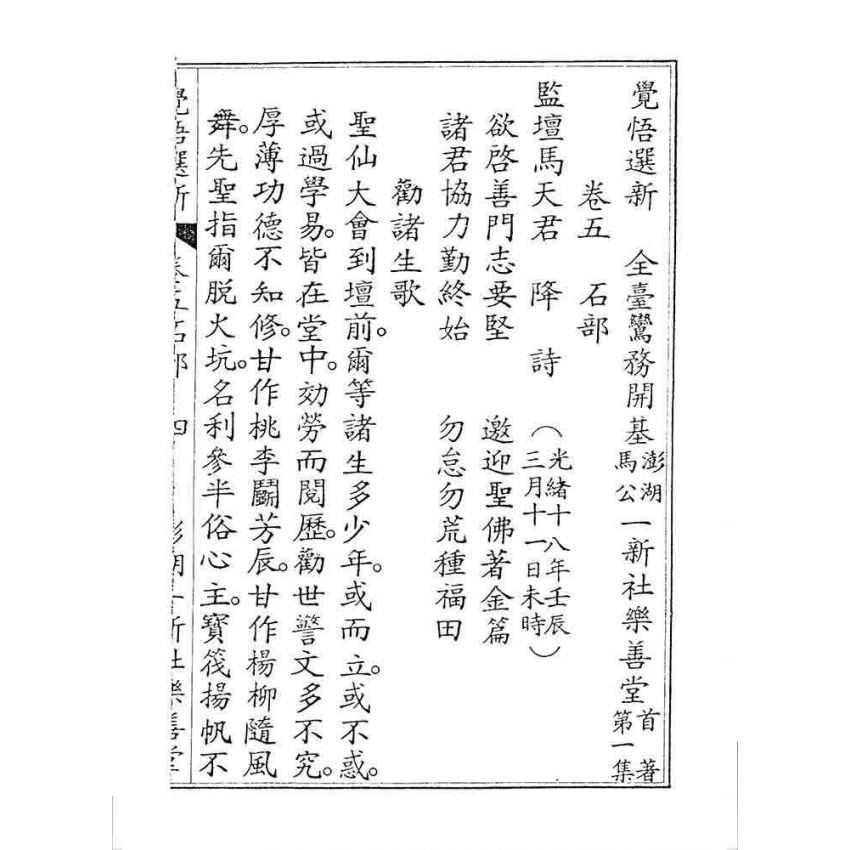 覺悟選新 全臺鸞務開基澎湖馬公一新社樂善堂首著第一集
卷五 石部
監壇馬天君 降 詩 (光緒十八年壬辰三月十一日未時)
欲啓善門志要堅 邀迎聖佛著金篇
諸君協力勤終始 勿怠勿荒種福田
勸諸生歌
聖仙大會到壇前。爾等諸生多少年。或而立。或不惑。
或過學易。皆在堂中。効勞而閱歷。勸世警文多不究。
厚薄功德不知修。甘作桃李鬪芳辰。甘作楊柳隨風
舞。先聖指爾脫火坑。名利參半俗心主。寶筏揚帆不
覺悟選新 卷五石部 四 澎湖一新社樂善堂